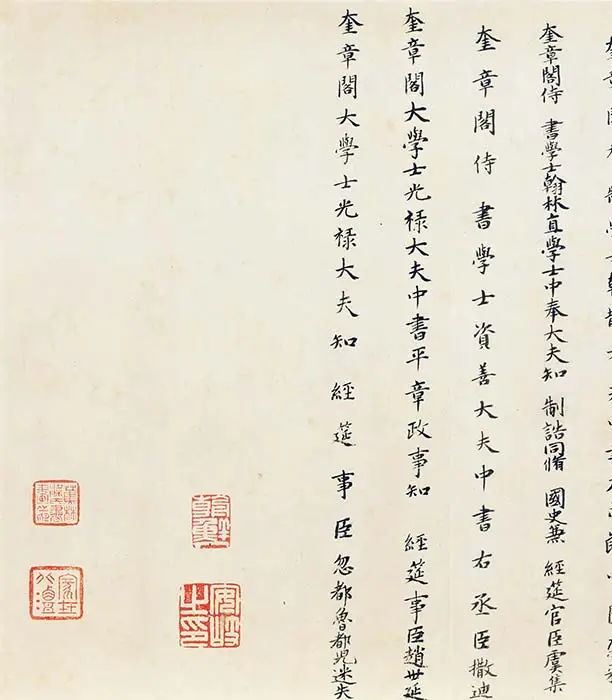 奎章閣侍 書學士翰林直學士中奉大夫知 制誥同脩 國史兼 經筵官臣虞集
奎章閣侍 書學士資善大夫中書右丞臣撒迪
奎章閣大學士光禄大夫中書平章政事知 經筵事臣趙世延
奎章閣大學士光禄大夫知 經筵事臣忽都魯都兒迷失
安岐之印